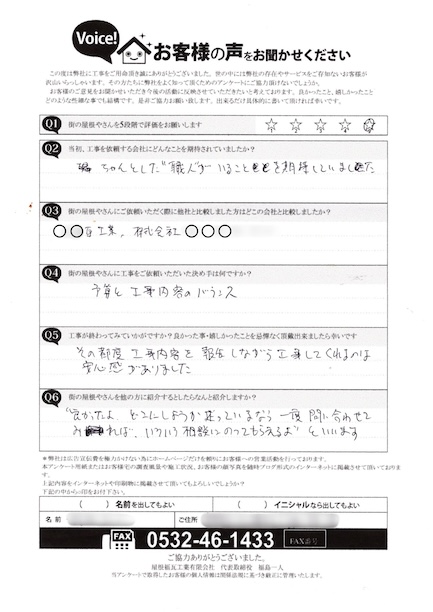 Voice!
お客様の声をお聞かせください
この度は弊社に工事をご用命頂き誠にありがとうございました。世の中には弊社の存在やサービスをご存知ないお客様が
沢山いらっしゃいます。その方たちに弊社をよく知って頂くためのアンケートにご協力頂けないでしょうか。
お客様のご意見をお聞かせいただき今後の活動に反映させていただきたいと考えております。良かったこと、嬉しかったこと
どのような些細な事でも結構です。是非ご協力お願い致します。出来るだけ具体的に書いて頂ければ幸いです。
Q1 街の屋根やさんを5段階で評価をお願いします ☆ ☆ ☆ ☆
Q2 当初、工事を依頼する会社にどんなことを期待されていましたか?
ちゃんとした"職人"がいることを期待していました
Q3 街の屋根やさんにご依頼いただく際に他社と比較しました方はどこの会社と比較しましたか?
〇〇百工業、株式会社〇〇〇
Q4 街の屋根やさんに工事をご依頼いただいた決め手は何ですか?
予算と工事内容のバランス
Q5 工事が終わってみていかがですか?良かった事・嬉しかったことを忌憚なく頂戴出来ましたら幸いです
その都度工事内容を報告しながら工事してくれるのは
安心感がありました
Q6 街の屋根やさんを他の方に紹介するとしたらなんと紹介しますか?
"良かったよ、どこにしようか迷っているなら一度問い合わせて
みれば、いろいろ相談にのってもらえるよ"といいます
*弊社は広告宣伝費を極力かけない為にホームページだけを頼りにお客様への営業活動を行っております。
本アンケート用紙またはお客様宅の調査風景や施工状況、お客様の顔写真を随時ブログ形式のインターネットに掲載させて頂いております。
上記内容をインターネットや印刷物に掲載させて頂いてもよろしいでしょうか?
下記の中から○印をお付け下さい。
( )名前を出してもよい ( )イニシャルなら出してもよい
名前 ご住所
FAX 0532-46-1433 FAX番号
ご協力ありがとうございました。
屋根福瓦工業有限会社 代表取締役 福島一人
当アンケートで取得したお客様の個人情報は関係法規に基づき厳正に管理いたします。